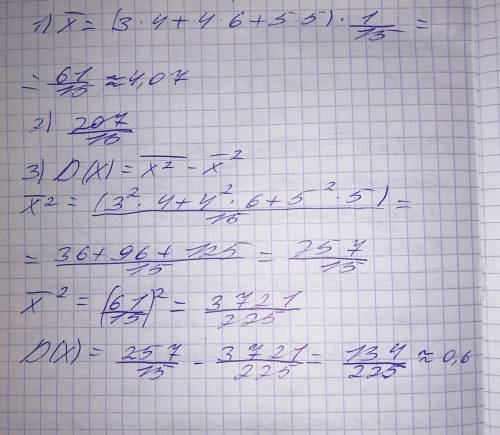 1) x̅ = (3·4+4·6+5·5)·1/15 =
= 61/15 ≈ 4,07
2) 207/15
3) D(X) = x̅²̅ - x̅²
x̅²̅ = (3²·4+4²·6+5²·5)/15 =
= 36+96+125/15 = 257/15
x̅² = (61/15)² = 3721/225
D(X) = 257/15 - 3721/225 = 134/225 ≈ 0,6